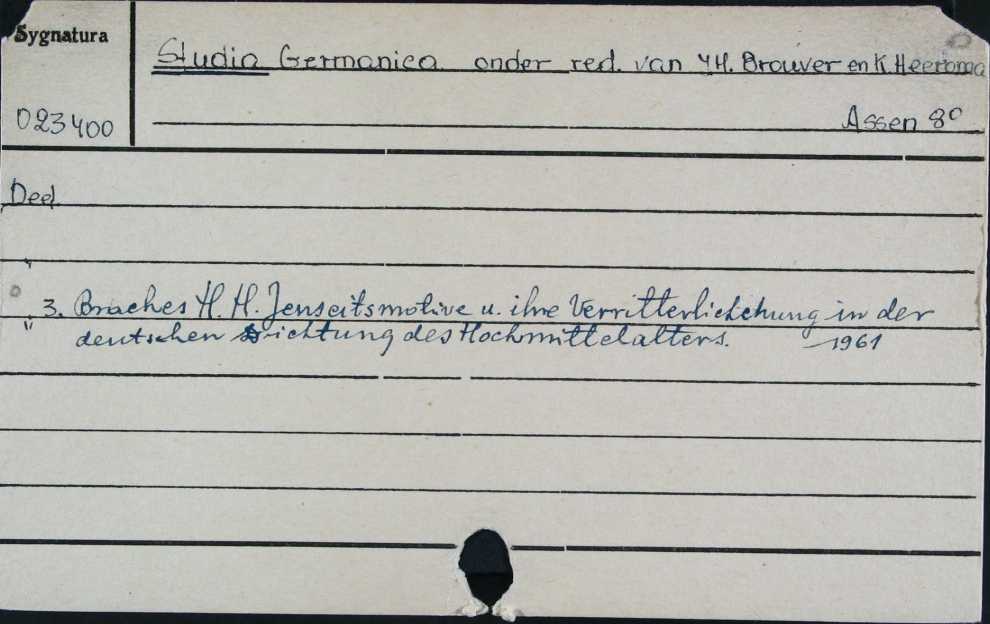 Sygnatura
Studia Germanica onder red. van J.H. Brouwer en K. Heeroma
023400
Assen 8°
Deel
"
3. Braches H. H. Jenseitsmotive u. ihre Verritterlichung in der
" deutschen Dichtung des Hochmittelalters. 1961